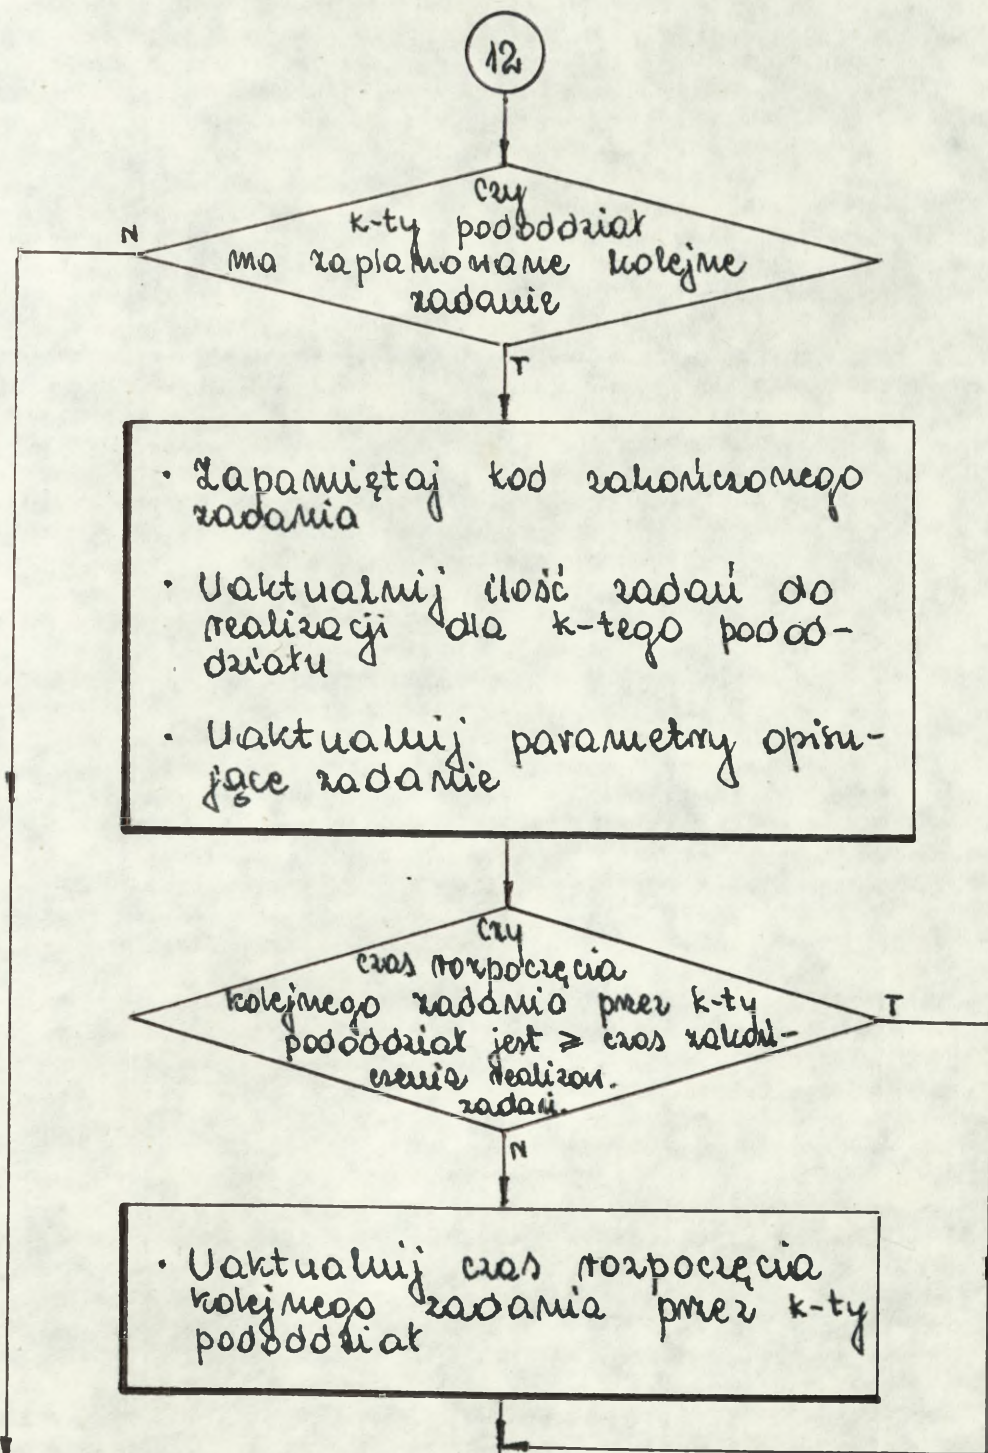 12
czy
k-ty pododdział
N
ma zaplanowane kolejne
zadanie
T
· Zapamiętaj kod zakończonego
zadania
· Uaktualnij ilość zadań do
realizacji dla k-tego podod-
działu
· Uaktualnij parametry opisu-
jące zadanie
czy
czas rozpoczęcia
kolejnego zadania przez k-ty
T
pododdział jest ≥ czas zakoń-
czenia realizow.
zadań.
N
· Uaktualnij czas rozpoczęcia
kolejnego zadania przez k-ty
pododdział